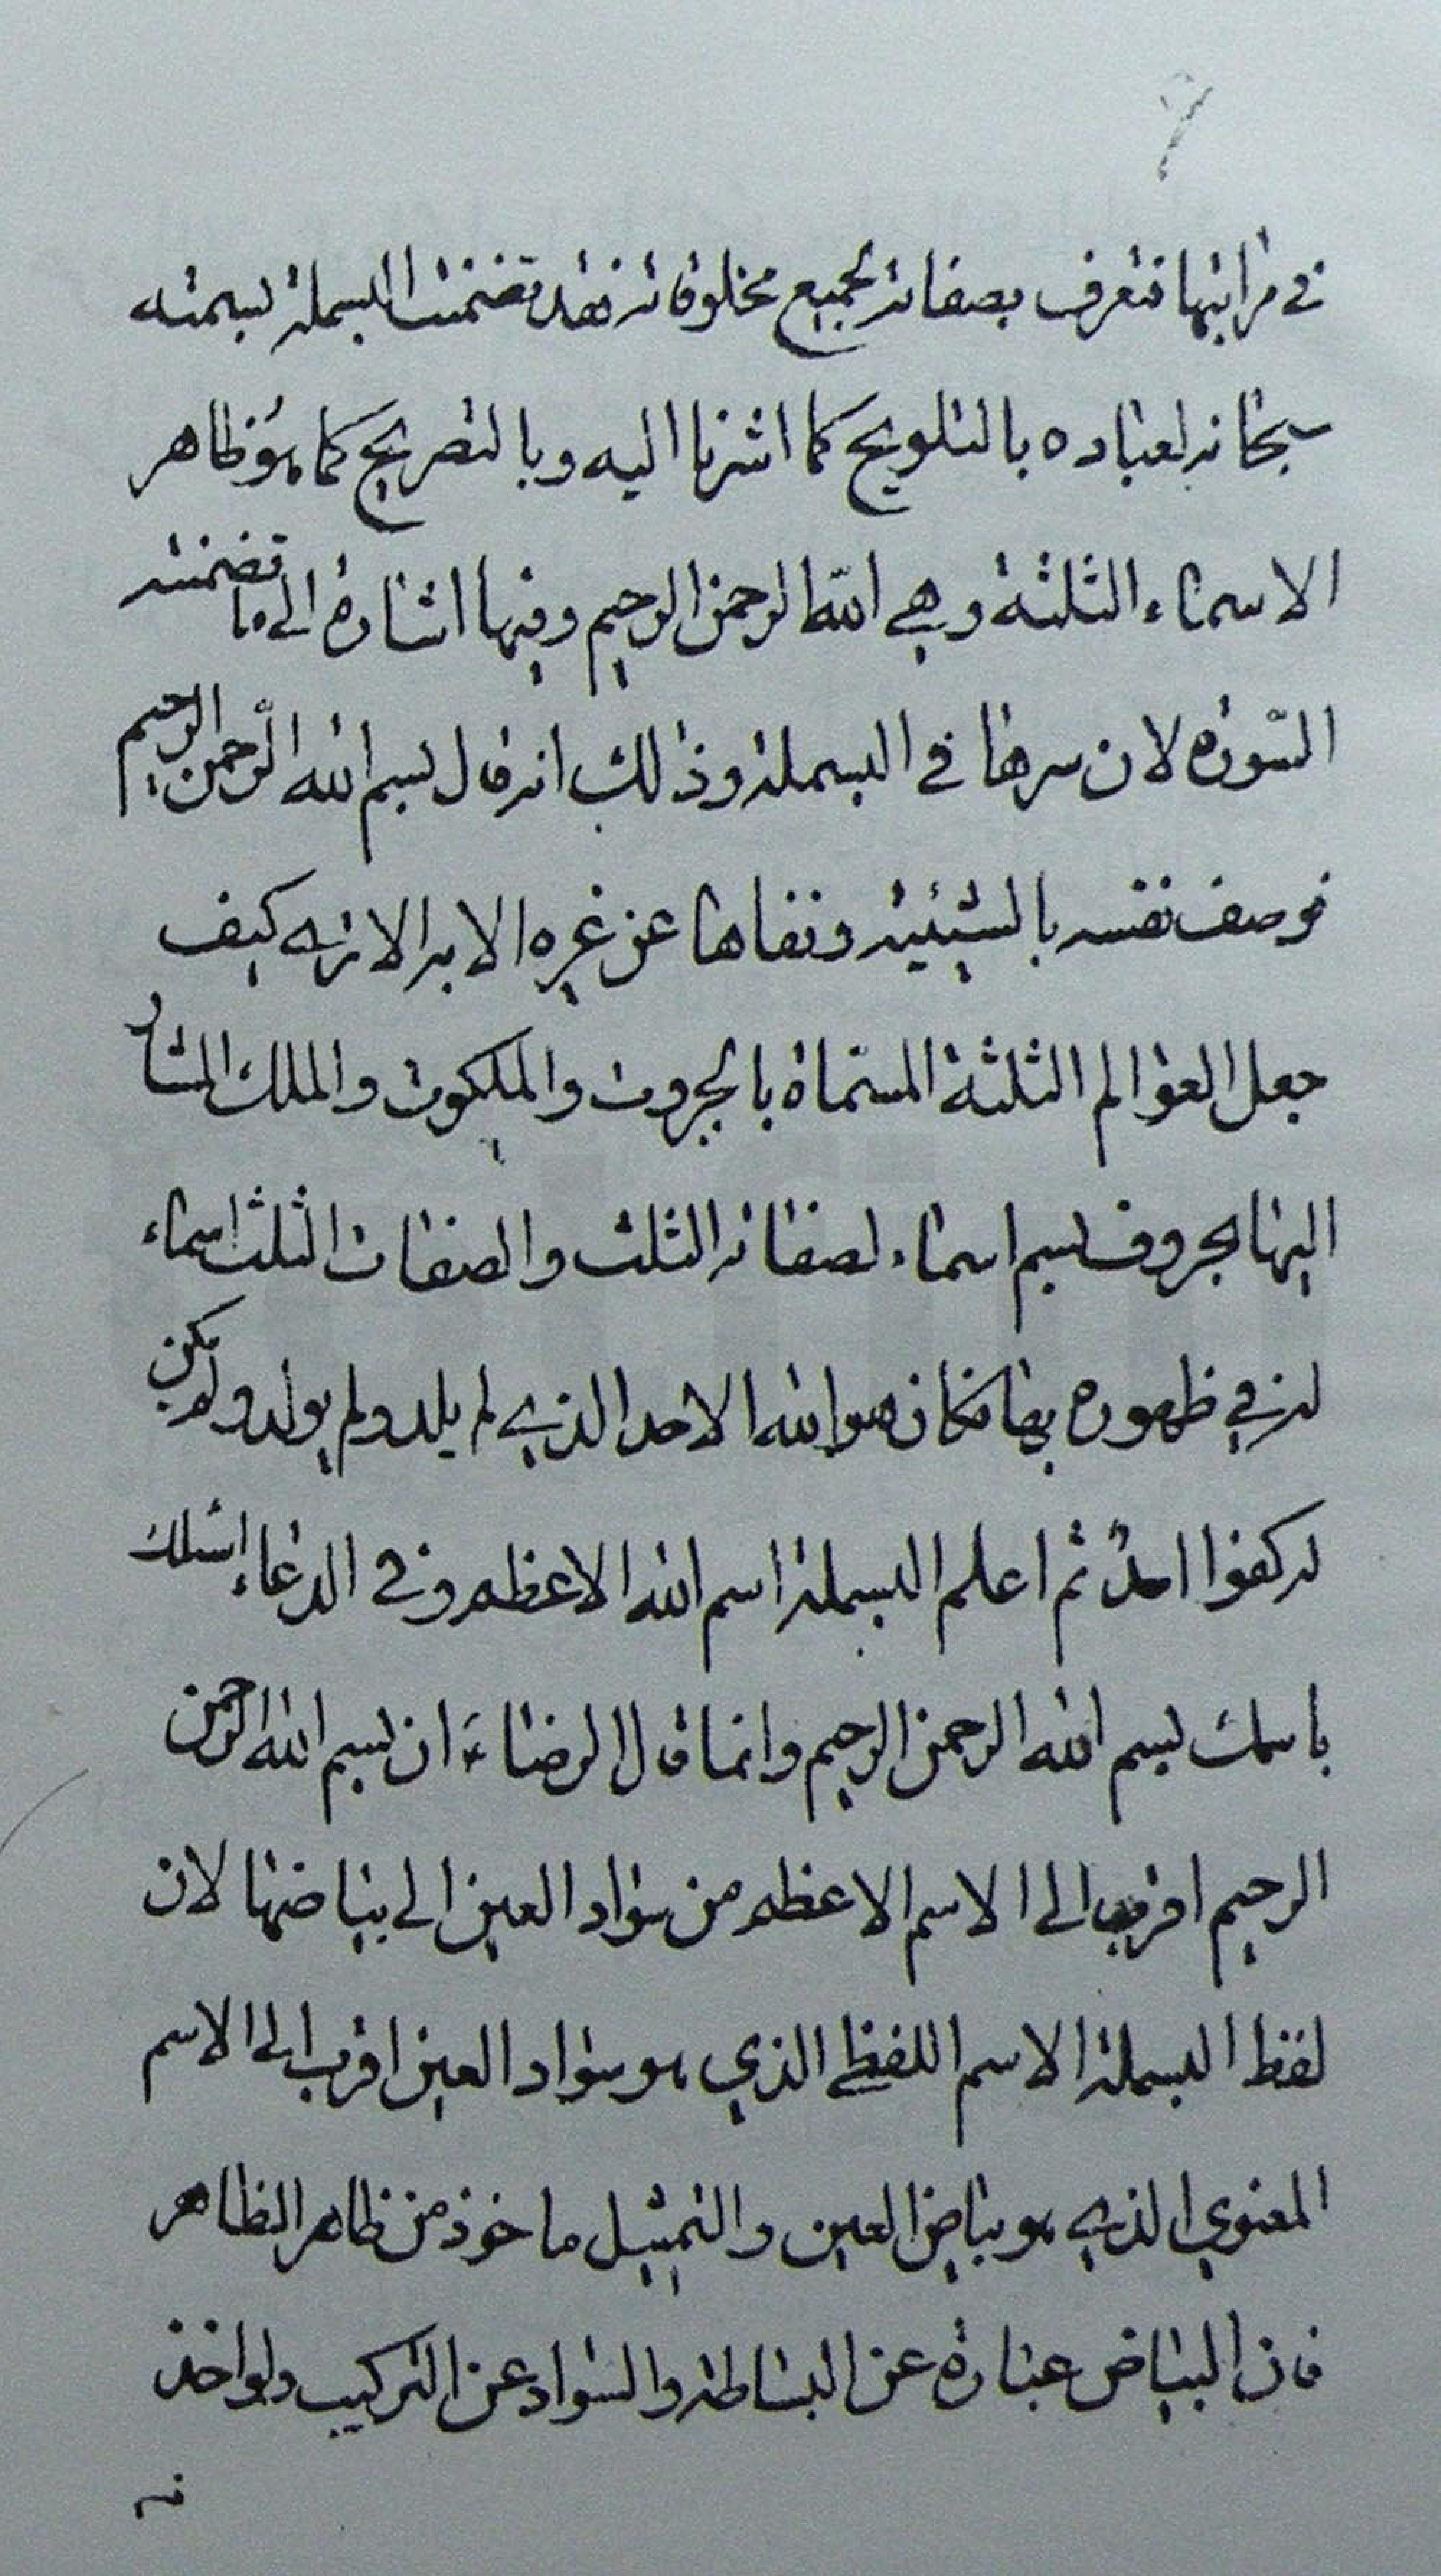 في مراتبها فتعرف بصفاته لجميع مخلوقاته فقد تضمنت البسملة تسميته
سبحانه لعباده بالتلويح كما اشرنا اليه وبالتصريح كما هو ظاهر
الاسماء الثلثة وهي الله الرحمن الرحيم وفيها اشارة الى ما تضمنته
السورة لان سرها في البسملة وذلك انه قال بسم الله الرحمن الرحيم
فوصف نفسه بالشيئية ونفاها عن غيره الا به الا ترى كيف
جعل العوالم الثلثة المسماة بالجبروت والملكوت والملك المشار
اليها بحروف بسم اسماء لصفاته الثلث والصفات الثلث اسماء
له في ظهوره بها فكان هو الله الاحد الذي لم يلد ولم يولد ولم يكن
له كفوا احد ثم اعلم البسملة اسم الله الاعظم وفي الدعاء اسئلك
باسمك بسم الله الرحمن الرحيم وانما قال الرضا ء ان بسم الله الرحمن
الرحيم اقرب الى الاسم الاعظم من سواد العين الى بياضها لان
لفظ البسملة الاسم اللفظي الذي هو سواد العين اقرب الى الاسم
المعنوي الذي هو بياض العين والتمثيل ماخوذ من ظاهر الظاهر
فان البياض عبارة عن البساطة والسواد عن التركيب ولو اخذ